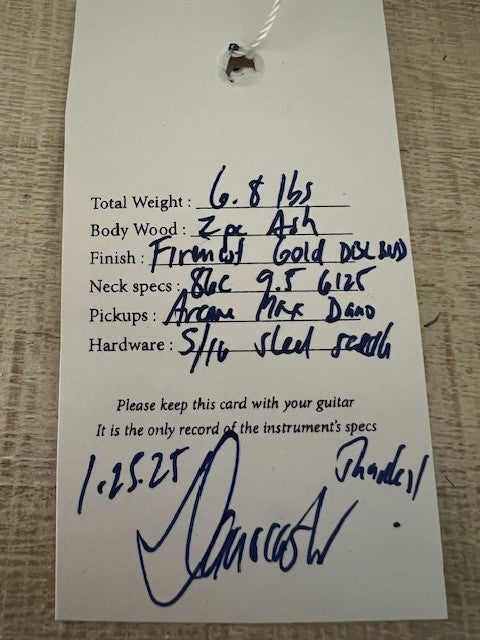 Total Weight : 6.8 lbs
Body Wood : 2 pc Ash
Finish : Firemist Gold DBL BND
Neck specs : 86C 9.5 6125
Pickups : Arcane Dano
Hardware : 5/16 steel
Please keep this card with your guitar
It is the only record of the instrument's specs
1.25.25 Thanks!